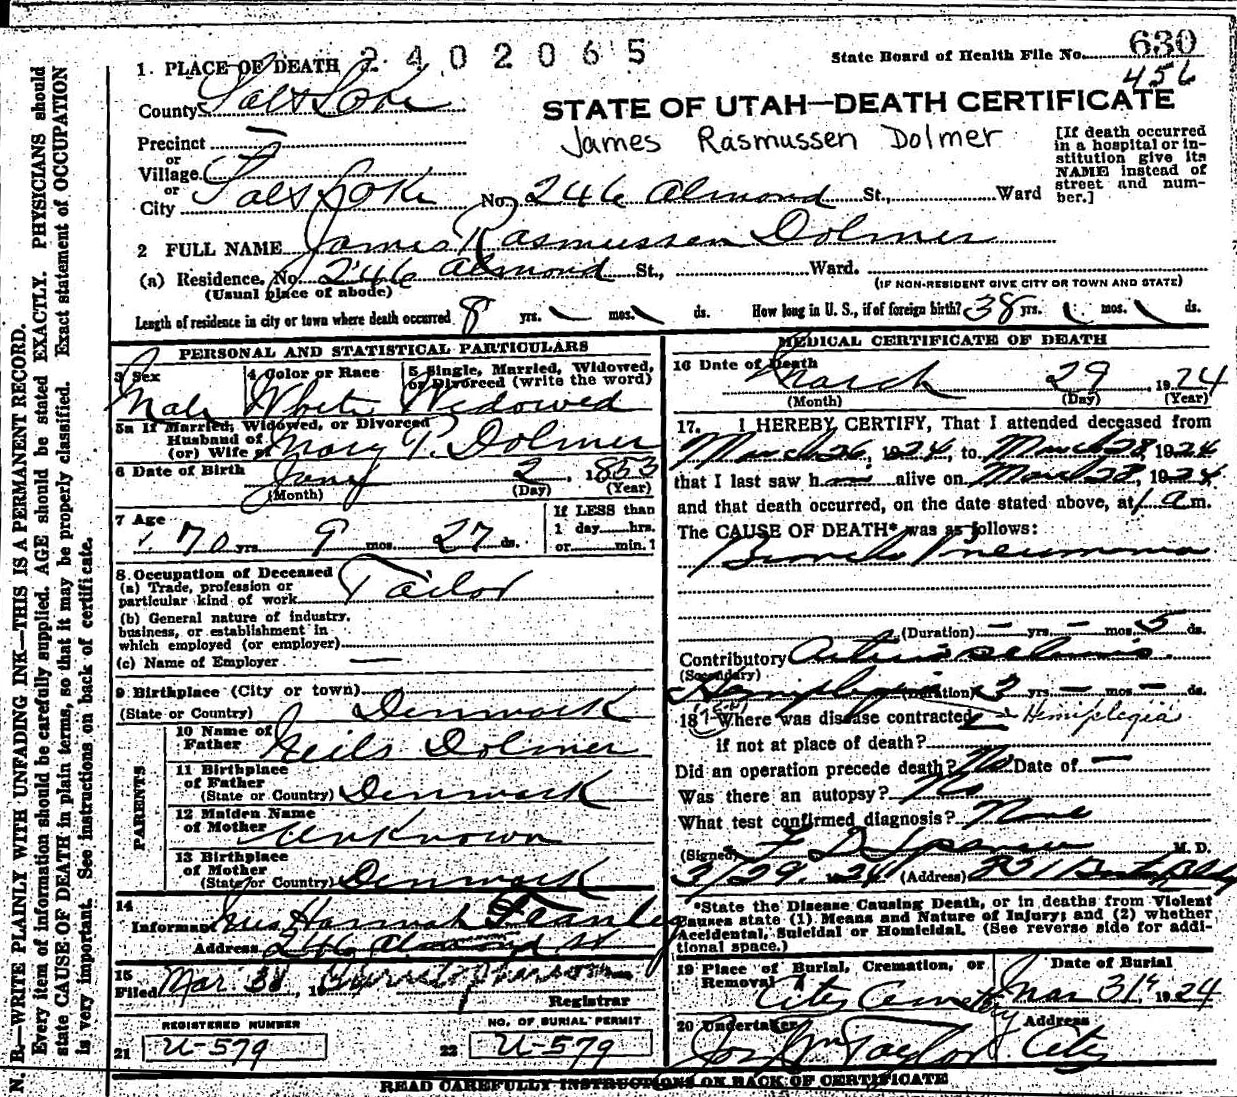 1 PLACE OF DEATH 2402065
State Board of Health File No. 630
456
County Salt Lake
STATE OF UTAH—DEATH CERTIFICATE
James Rasmussen Dolmer
Precinct
or
Village
or
City Salt Lake No. 246 Almond St., Ward
[If death occurred
in a hospital or in-
stitution give its
NAME instead of
street and num-
ber.]
2 FULL NAME James Rasmussen Dolmer
(a) Residence. No. 246 Almond St., Ward.
(Usual place of abode)
(IF NON-RESIDENT GIVE CITY OR TOWN AND STATE)
Length of residence in city or town where death occurred 8 yrs. mos. ds. How long in U. S., if of foreign birth? 38 yrs. mos. ds.
PERSONAL AND STATISTICAL PARTICULARS
3 Sex 4 Color or Race 5 Single, Married, Widowed,
or Divorced (write the word)
Male White Widowed
5a If Married, Widowed, or Divorced
Husband of
(or) Wife of Mary P. Dolmer
6 Date of Birth Jany 2, 1853
(Month) (Day) (Year)
7 Age 70 yrs. 9 mos. 27 ds.
If LESS than
1 day hrs.
or min.
8 Occupation of Deceased
(a) Trade, profession or
particular kind of work Tailor
(b) General nature of industry,
business, or establishment in
which employed (or employer)
(c) Name of Employer —
9 Birthplace (City or town)
(State or Country) Denmark
PARENTS
10 Name of
Father Neils Dolmer
11 Birthplace
of Father
(State or Country) Denmark
12 Maiden Name
of Mother Unknown
13 Birthplace
of Mother
(State or Country) Denmark
14
Informant Mrs Hannah
Address 246 Almond St
15
Filed Mar. 31, 19
Registrar
REGISTERED NUMBER
21 U-579
NO. OF BURIAL PERMIT
22 U-579
MEDICAL CERTIFICATE OF DEATH
16 Date of Death March 29, 1924
(Month) (Day) (Year)
17. I HEREBY CERTIFY, That I attended deceased from
March 26, 1924, to March 28, 1924
that I last saw h alive on March 28, 1924
and that death occurred, on the date stated above, at 1 a.m.
The CAUSE OF DEATH* was as follows:
Broncho Pneumonia
(Duration) — yrs. — mos. 5 ds.
Contributory Arterio sclerosis
(Secondary)
Hemiplegia (Duration) 3 yrs. — mos. — ds.
18 Where was disease contracted — Hemiplegia
if not at place of death?
Did an operation precede death? No Date of —
Was there an autopsy? No
What test confirmed diagnosis? None
(Signed) F D Spencer M. D.
3/29, 1924 (Address)
*State the Disease Causing Death, or in deaths from Violent
Causes state (1) Means and Nature of Injury; and (2) whether
Accidental, Suicidal or Homicidal. (See reverse side for addi-
tional space.)
19 Place of Burial, Cremation, or
Removal
City Cemetery
Date of Burial
Mar 31, 1924
20 Undertaker Address
Jos Wm Taylor City
READ CAREFULLY INSTRUCTIONS ON BACK OF CERTIFICATE
N. B.—WRITE PLAINLY WITH UNFADING INK—THIS IS A PERMANENT RECORD.
Every item of information should be carefully supplied. AGE should be stated EXACTLY. PHYSICIANS should
state CAUSE OF DEATH in plain terms, so that it may be properly classified. Exact statement of OCCUPATION
is very important. See instructions on back of certificate.